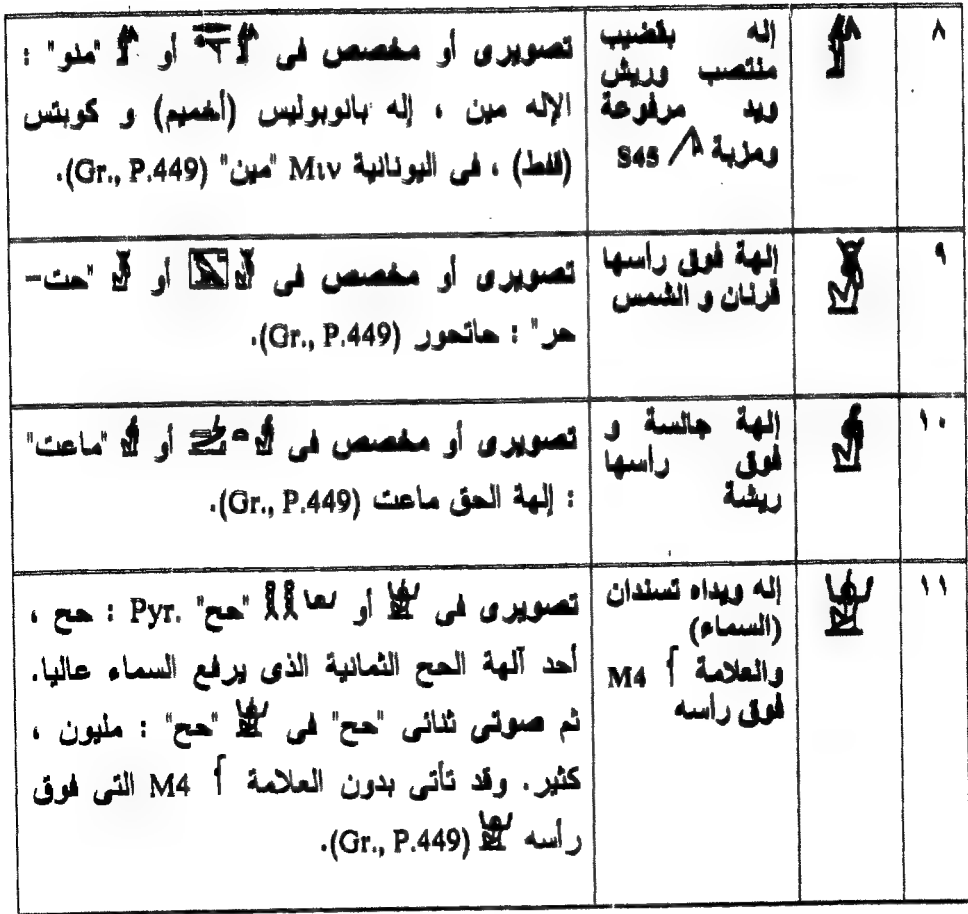 ٨
إله بقضيب
منتصب وريش
ويد مرفوعة
ومزبة S45
تصويرى أو مخصص فى أو "منو" :
الإله مين ، إله بانوبوليس (أخميم) و كوبتس
(قفط) ، فى اليونانية Μιν "مين" (Gr., P.449).
٩
إلهة فوق رأسها
قرنان و الشمس
تصويرى أو مخصص فى أو "حت-
حر" : حاتحور (Gr., P.449).
١٠
إلهة جالسة و
فوق رأسها
ريشة
تصويرى أو مخصص فى أو "ماعت"
: إلهة الحق ماعت (Gr., P.449).
١١
إله ويداه تسندان
(السماء)
والعلامة M4
فوق راسه
تصويرى فى أو "حح" Pyr. : حح ،
أحد آلهة الحح الثمانية الذى يرفع السماء عاليا.
ثم صوتى ثنائى "حح" فى "حح" : مليون ،
كثير. وقد تأتى بدون العلامة M4 التى فوق
رأسه (Gr., P.449).